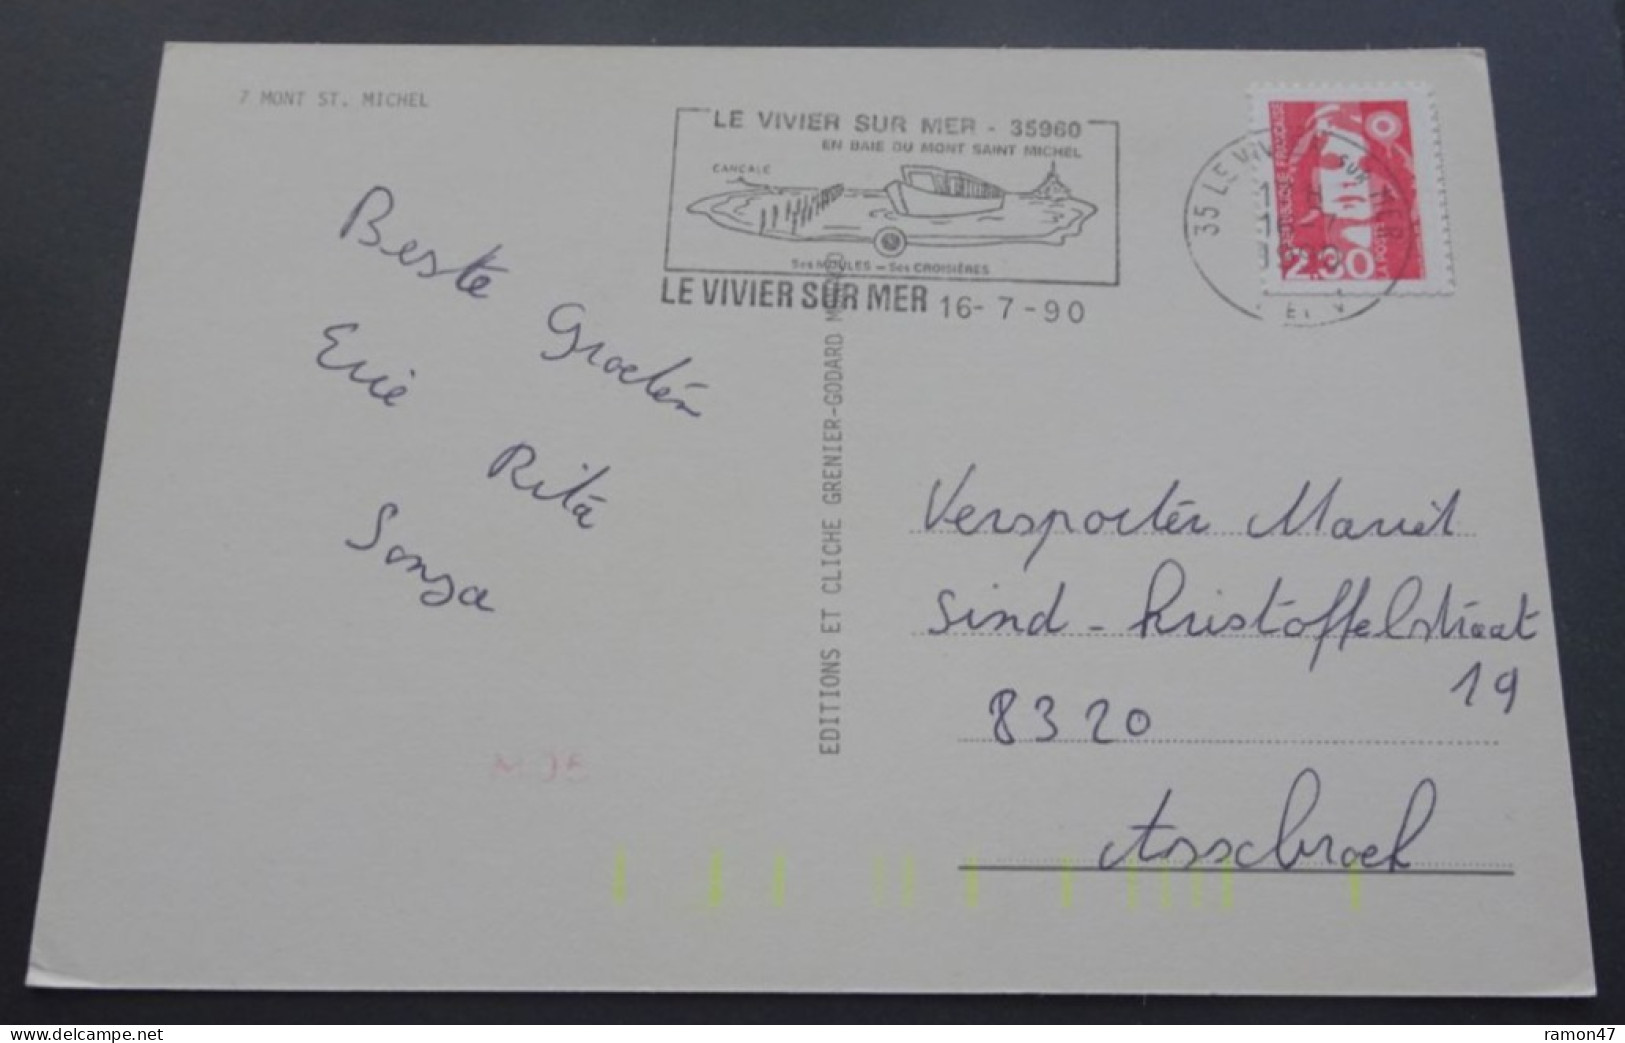 7 MONT ST. MICHEL
LE VIVIER SUR MER - 35960
EN BAIE DU MONT SAINT MICHEL
CANCALE
Ses MOULES - Ses CROISIÈRES
LE VIVIER SUR MER 16-7-90
35 LE VIVIER SUR MER
REPUBLIQUE FRANÇAISE
2,30
LA POSTE
Beste Groeten
Eric Rita
Sonja
EDITIONS ET CLICHE GRENIER-GODARD
Versporten Mariet
Sind-Kristoffelstraat
19
8320
Assebroek
www.delcampe.net
ramon47